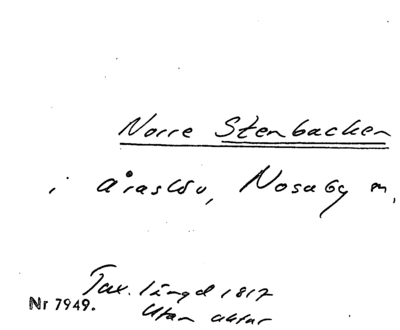 Norre Stenbacken
i Åraslöv, Nosaby m,
Tax. längd 1817
Utan aktar
Nr 7949.